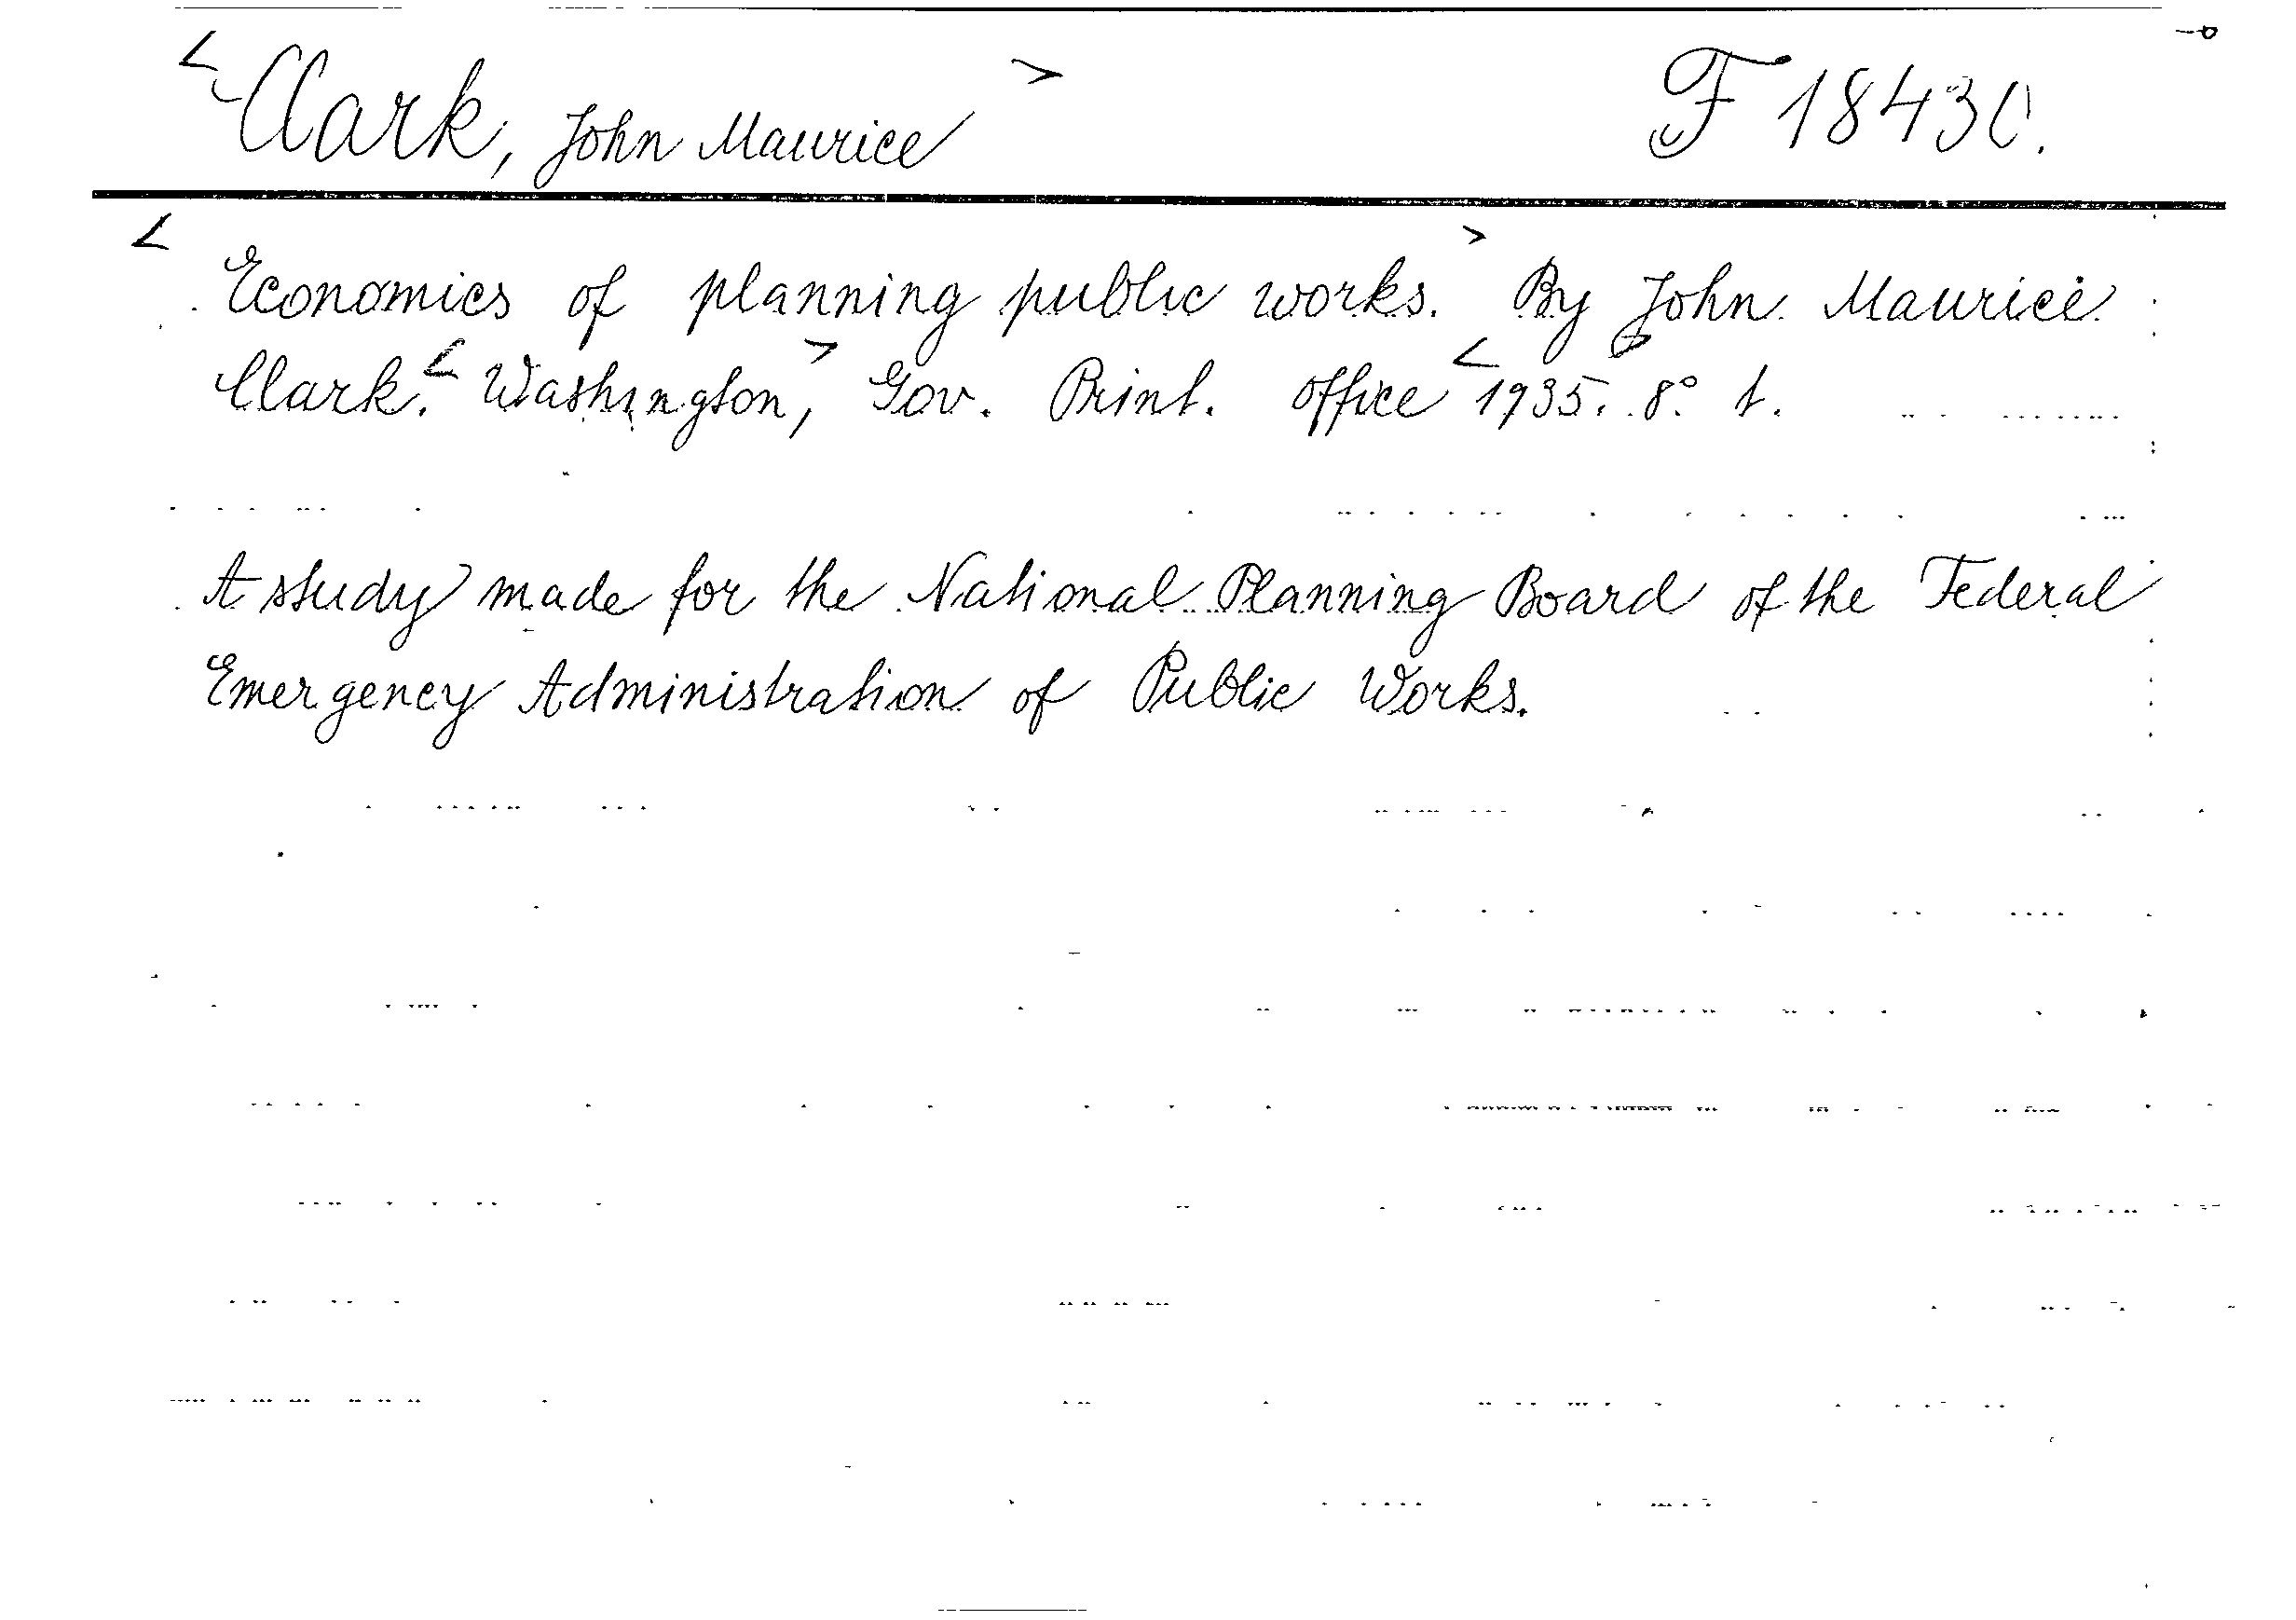 <Clark, John Maurice> F 18430.
<Economics of planning public works.> By John Maurice
Clark. <Washington,> Gov. Print. office <1935. 8° t.
A study made for the National Planning Board of the Federal
Emergency Administration of Public Works.